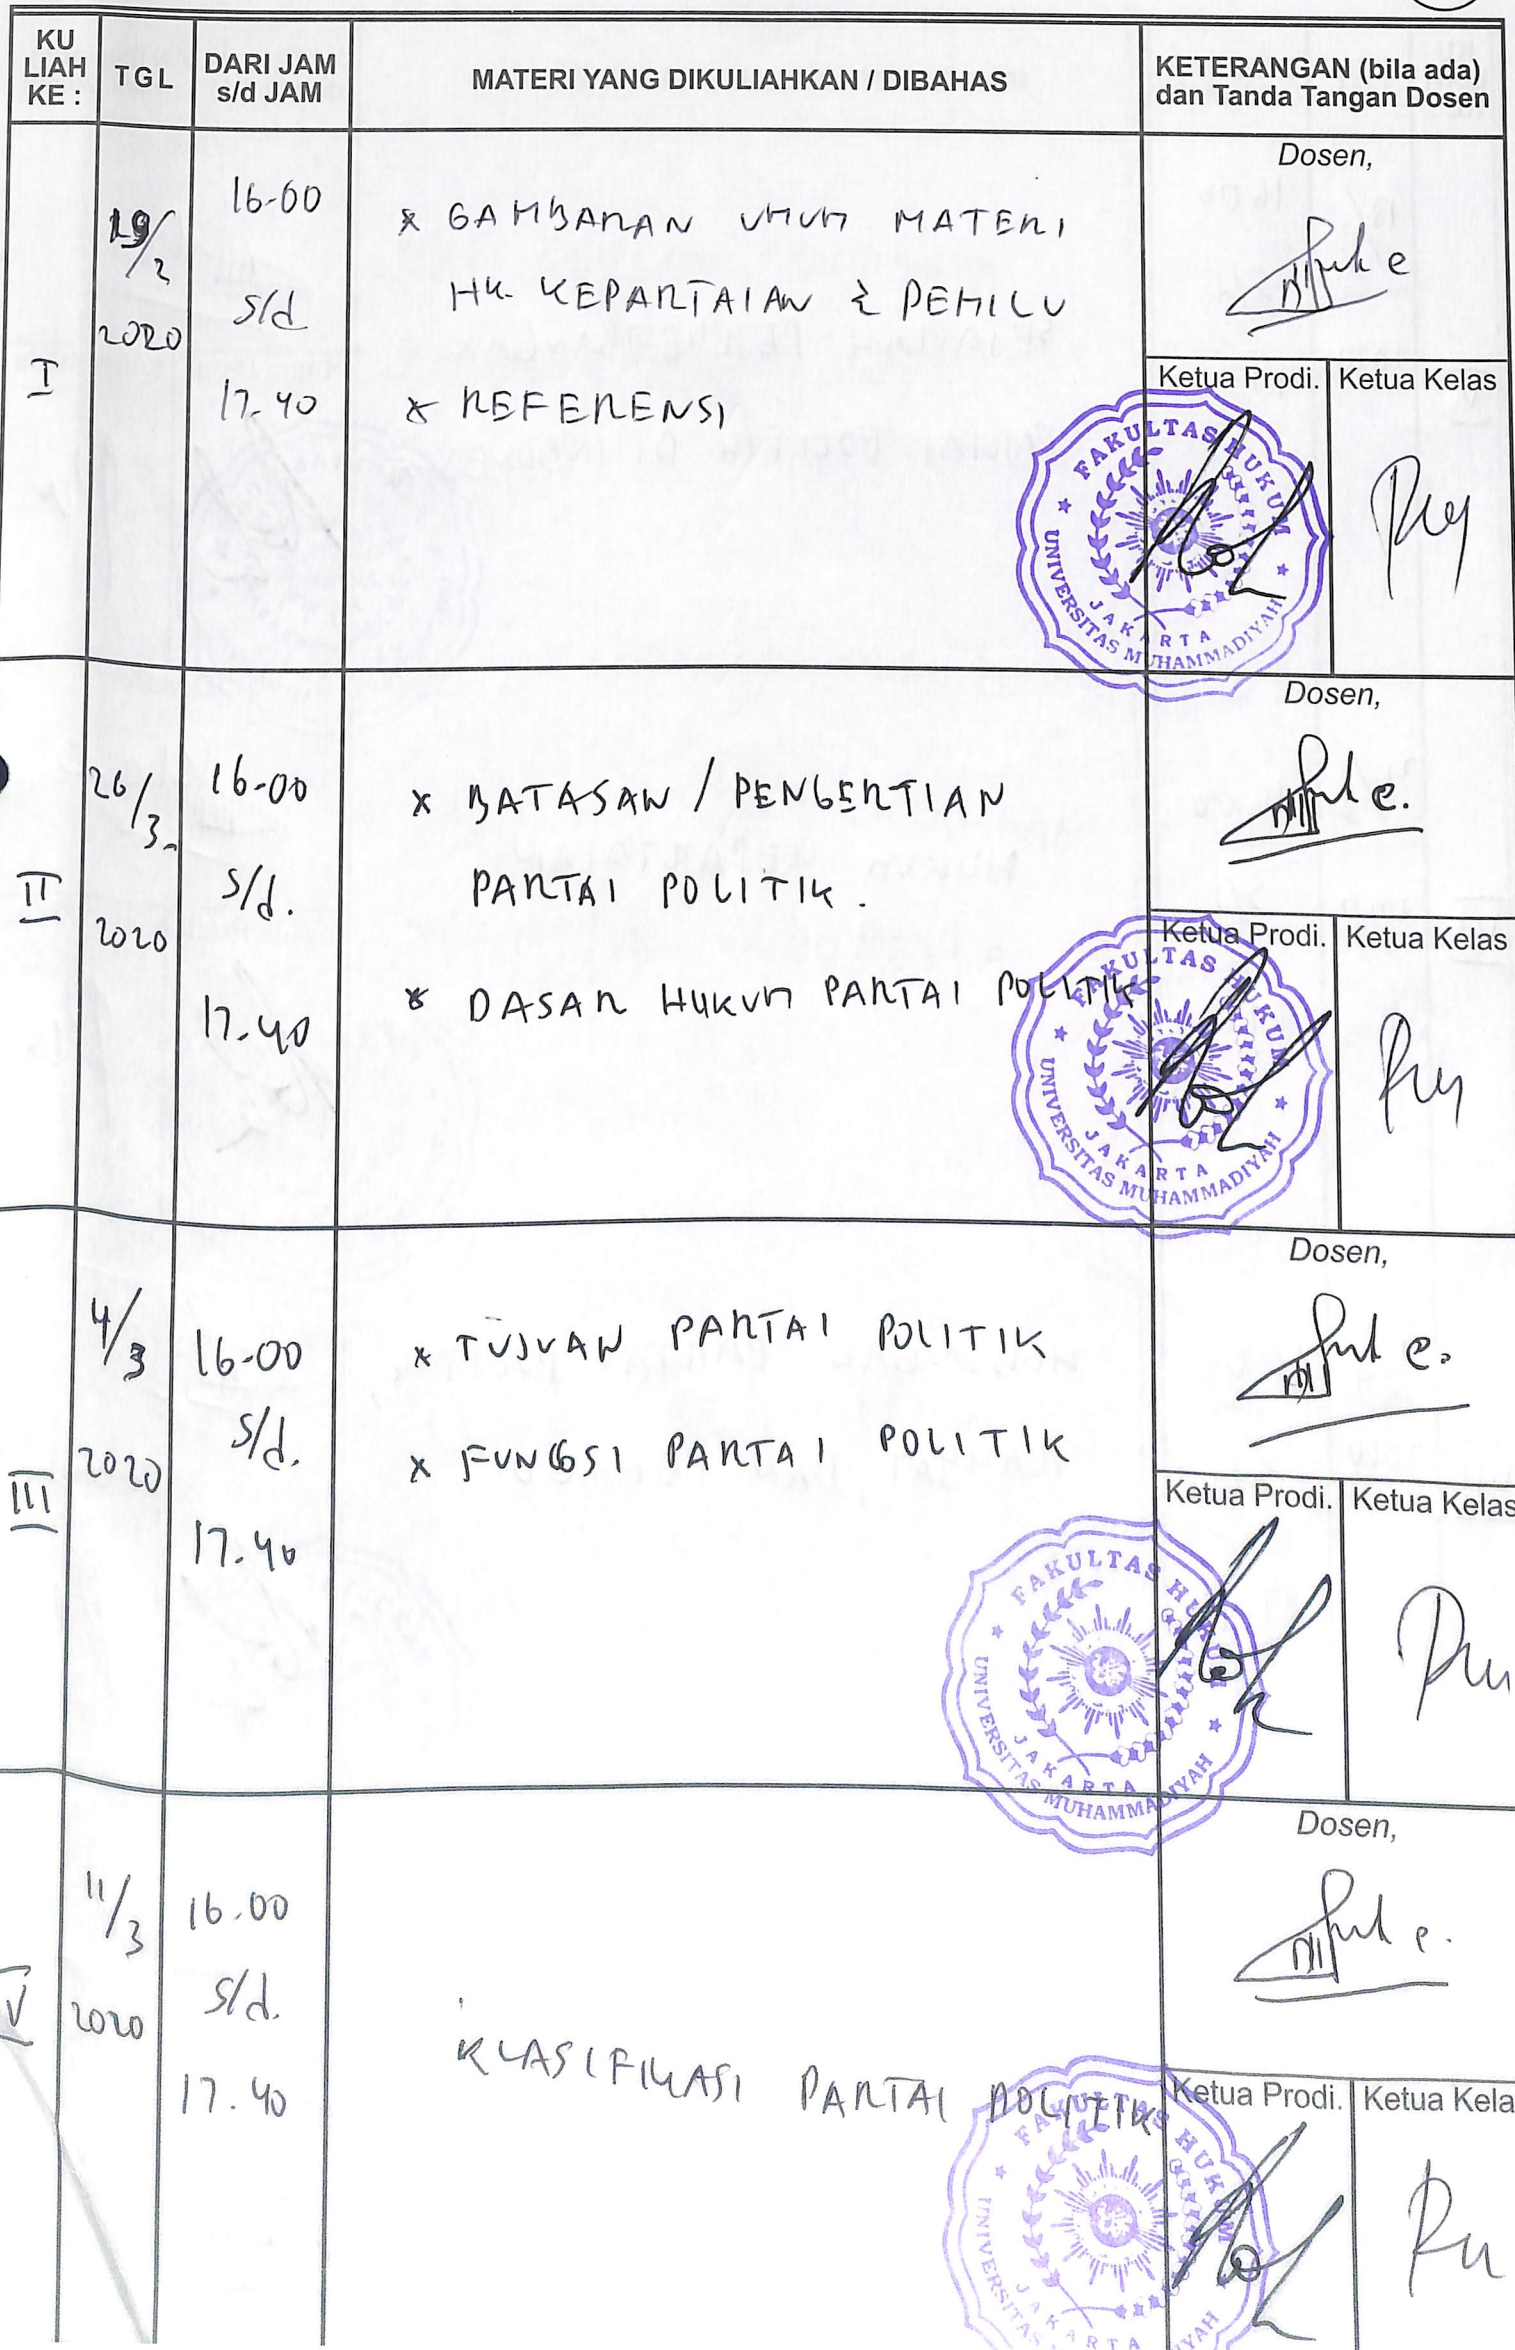 KU
LIAH
KE :
TGL
DARI JAM
s/d JAM
MATERI YANG DIKULIAHKAN / DIBAHAS
KETERANGAN (bila ada)
dan Tanda Tangan Dosen
I
19/2
2020
16-00
s/d
17.40
* GAMBARAN UMUM MATERI
HK. KEPARTAIAN & PEMILU
* REFERENSI
Dosen,
Ketua Prodi.
Ketua Kelas
FAKULTAS HUKUM
UNIVERSITAS MUHAMMADIYAH
JAKARTA
II
26/3.
2020
16-00
s/d.
17.40
* BATASAN / PENGERTIAN
PARTAI POLITIK.
* DASAR HUKUM PARTAI POLITIK
Dosen,
Ketua Prodi.
Ketua Kelas
FAKULTAS HUKUM
UNIVERSITAS MUHAMMADIYAH
JAKARTA
III
4/3
2020
16-00
s/d.
17.40
* TUJUAN PARTAI POLITIK
* FUNGSI PARTAI POLITIK
Dosen,
Ketua Prodi.
Ketua Kelas
FAKULTAS HUKUM
UNIVERSITAS MUHAMMADIYAH
JAKARTA
V
11/3
2020
16.00
s/d.
17.40
KLASIFIKASI PARTAI POLITIK
Dosen,
Ketua Prodi.
Ketua Kela
FAKULTAS HUKUM
UNIVERSITAS
JAKARTA